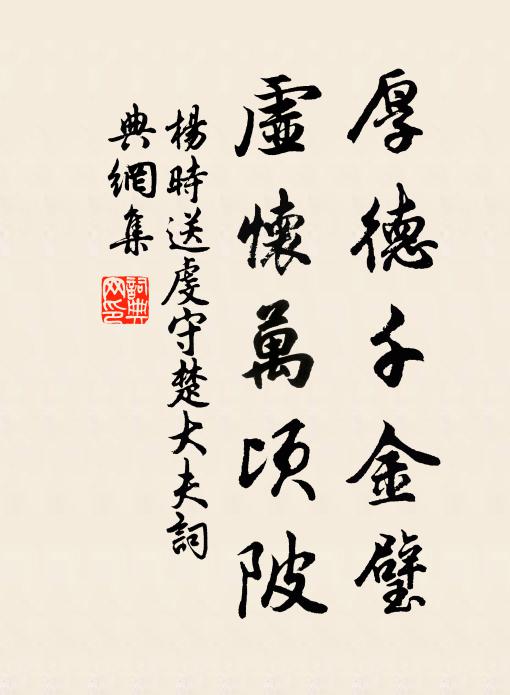 厚德千金璧
虛懷萬頃陂
楊時送虔守楚大夫詞
典網集
詞典網印